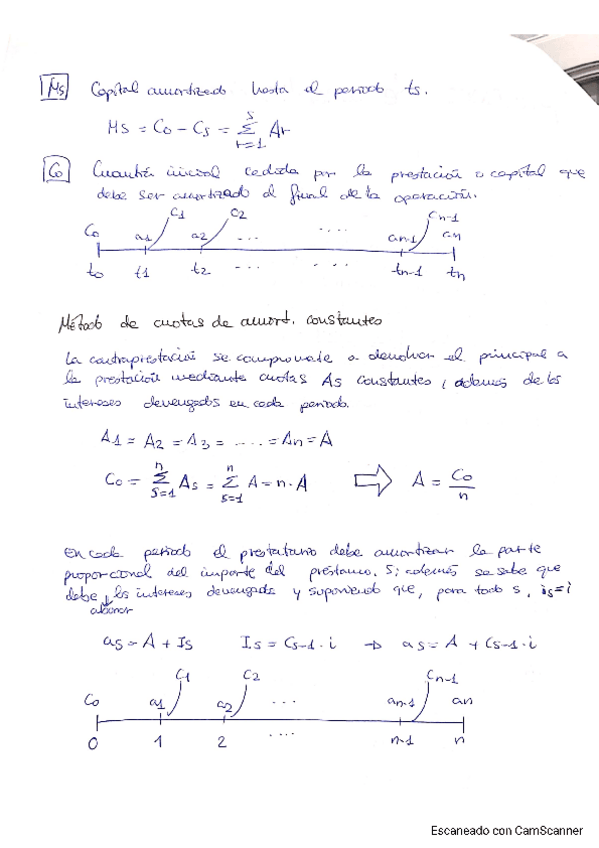 Ms Capital amortizado hasta el periodo ts.
Ms = Co - Cs = Σ Ar
s
r=1
Co Cuantía inicial cedida por la prestación o capital que
debe ser amortizado al final de la operación.
C1 C2 Cn-1
Co a1 a2 ... .... an-1 an
to t1 t2 --- --- tn-1 tn
Método de cuotas de amort. constantes
La contraprestación se compromete a devolver el principal a
la prestación mediante cuotas As constantes, además de los
intereses devengados en cada periodo.
A1 = A2 = A3 = ..... = An = A
n n
Co = Σ As = Σ A = n·A ⇒ A = Co/n
s=1 s=1
En cada periodo el prestatario debe amortizar la parte
proporcional del importe del préstamo. Si además se sabe que
debe los intereses devengados y suponiendo que, para todo s, is=i
abonar
as = A + Is Is = Cs-1·i → as = A + Cs-1·i
C1 C2 Cn-1
Co a1 a2 ... an-1 an
0 1 2 .... n-1 n
Escaneado con CamScanner